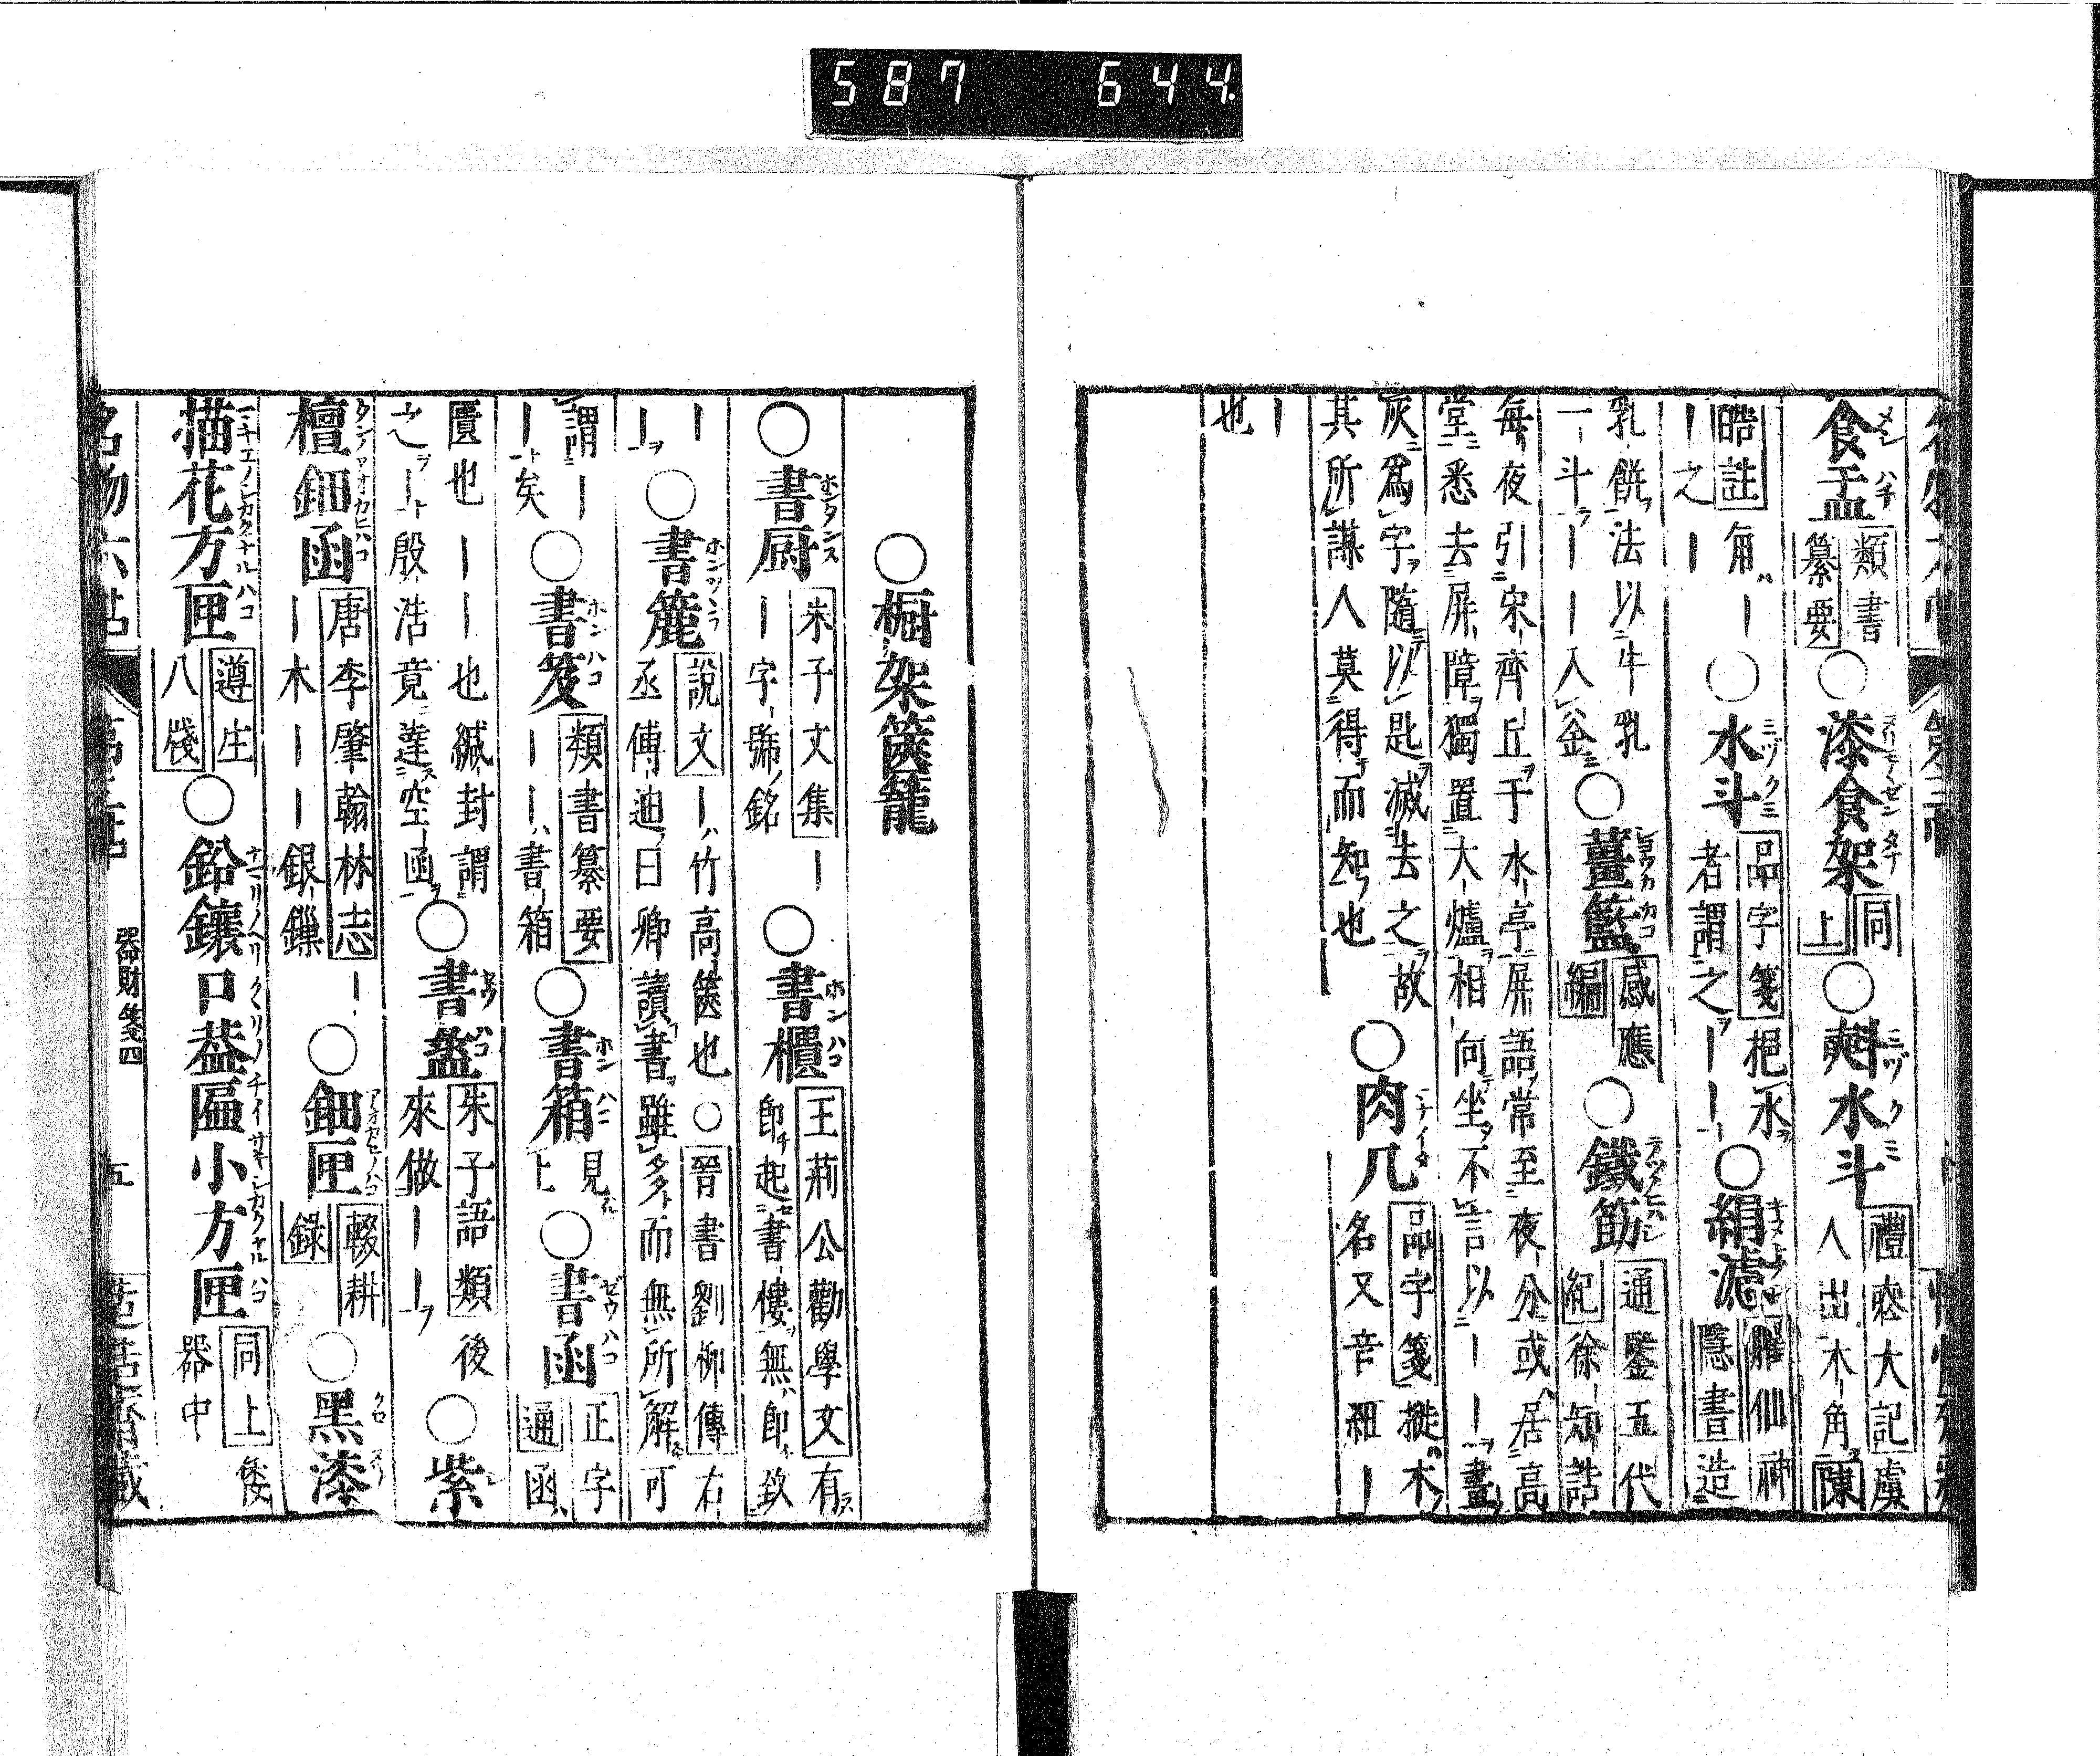 587 644.
食盂 類書纂要 ○漆食架 同上 ○㪺水斗 禮喪大記虞人出木角陳
皓註角ハ｜｜之｜ ○水斗 品字箋 挹水者謂之｜｜ ○絹濾 臞仙神隱書 造
乳餅法以牛乳一斗｜｜入釜 ○薑籃 感應編 ○鐵筯 通鑒五代紀 徐知誥
每夜引宋齊丘于水亭屏語常至夜分或居高
堂悉去屏障獨置大爐相向坐不言以｜｜畫
灰爲字隨以匙滅去之故
其所謀人莫得而知也 ○肉几 品字箋 搓木名又音祖｜
｜也
○橱架篋籠
○書厨 朱子文集 ｜｜字號銘 ○書櫃 王荊公勸學文 有即起書樓無即致
｜｜ ○書簏 說文 ｜竹高篋也 ○晉書劉柳傳 右丞傅迪曰卿讀書雖多而無所解可
謂｜｜矣 ○書笈 類書纂要 ｜｜書箱 ○書箱 見上 ○書函 正字通 函
匱也｜｜也緘封謂之｜殷浩竟達空函 ○書盝 朱子語類 後來做｜｜ ○紫
檀鈿函 唐李肇翰林志 ｜｜木｜｜銀鏁 ○鈿匣 輟耕錄 ○黑漆
描花方匣 遵生八牋 ○鉛鑲口葢匾小方匣 同上 倭器中
名物六帖
器財箋四
五